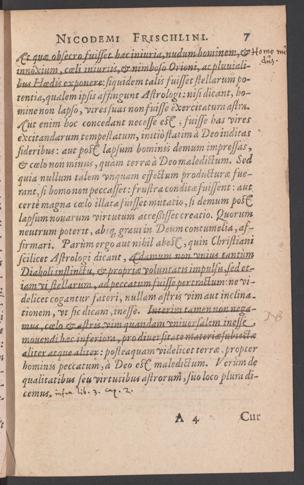 NICODEMI FRISCHLINI. 7
Et quæ obsecro fuisset hæc iniuria, nudum hominem, &
innoxium, cœli iniuriis, & nimboso Orioni, ac pluuiali-
bus Hœdis exponere: siquidem talis fuisset stellarum po-
tentia, qualem ipsis affingunt Astrologi: nisi dicant, ho-
mine non lapso, vires suas non fuisse exercitatura astra.
Aut enim hoc concedant necesse est, fuisse has vires
excitandarum tempestatum, initio statim à Deo inditas
sideribus: aut post lapsum hominis demum impressas,
& cœlo non minus, quam terræ à Deo maledictum. Sed
quia nullum talem vnquam effectum producturæ fue-
rant, si homo non peccasset: frustra conditæ fuissent: aut
certè magna cœlo illata fuisset mutatio, si demum post
lapsum nouarum virtutum accessisset creatio. Quorum
neutrum poterit, absq; graui in Deum contumelia, af-
firmari. Parùm ergo aut nihil abest, quin Christiani
scilicet Astrologi dicant, Adamum non vnius tantùm
Diaboli instinctu, & propriæ voluntatis impulsu, sed et-
iam vi stellarum, ad peccatum fuisse pertractum: ne vi-
delicet cogantur fateri, nullam astris vim aut inclina-
tionem, vt sic dicam, inesse. Interim tamen non nega-
mus, cœlo & astris vim quandam vniuersalem inesse,
mouendi hæc inferiora, pro diuersitate materiæ subiectæ
aliter atque aliter: postea quam videlicet terræ, propter
hominis peccatum, à Deo est maledictum. Verùm de
qualitatibus seu virtutibus astrorum, suo loco plura di-
cemus. infra lib. 3. cap. 2.
A 4 Cur
Homo nu
dus.